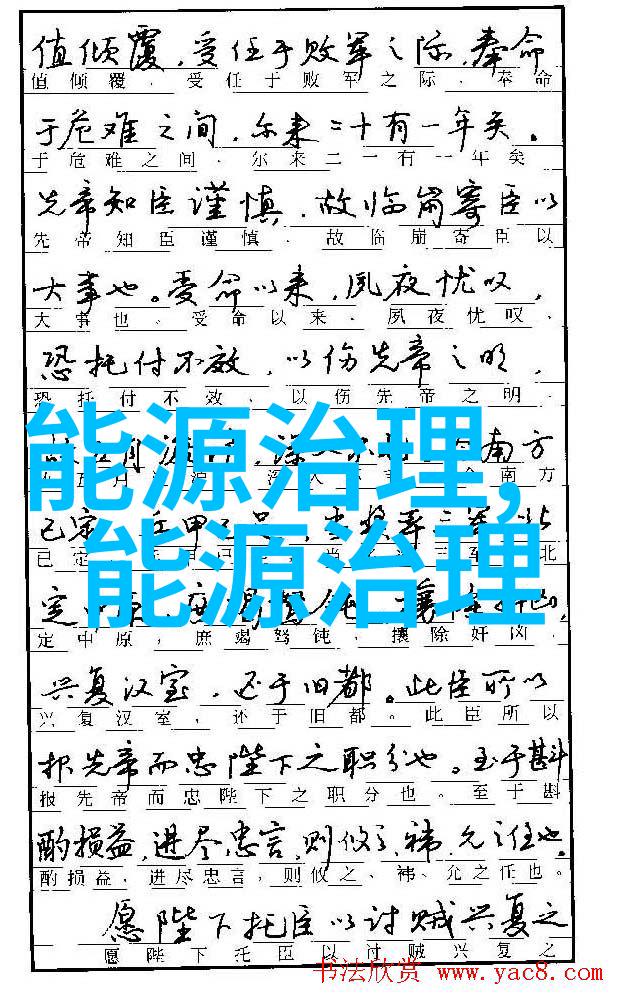 值倾覆,受任于败军之际,奉命
值倾覆,受任于败军之际,奉命
于危难之间,尔来二十有一年矣。
于危难之间,尔来二一有一年矣
先帝知臣谨慎,故临崩寄臣以
先帝知臣谨慎,故临崩寄臣以
大事也。受命以来,夙夜忧叹,
大事也。受命以来,夙夜忧叹,
恐托付不效,以伤先帝之明,
恐托付不效,以伤先帝之明,
能源治理,
南方
南方
已定
北
已定
北
能源治理
定中原
定中原,庶竭驽钝,攘除奸凶,
兴复汉室,还于旧都。此臣所以
兴复汉室,还于旧都。此臣所以
报先帝而忠陛下之职分也。至于斟
报先帝而忠陛下之职分也。至于斟
酌损益,进尽忠言,则攸之、祎、允之任也。
酌损益,进尽忠言,则攸之、祎、允之任也。
愿陛下托臣以讨贼兴复之
愿陛下托臣以讨贼兴复之
书法欣赏 www.yac8.com